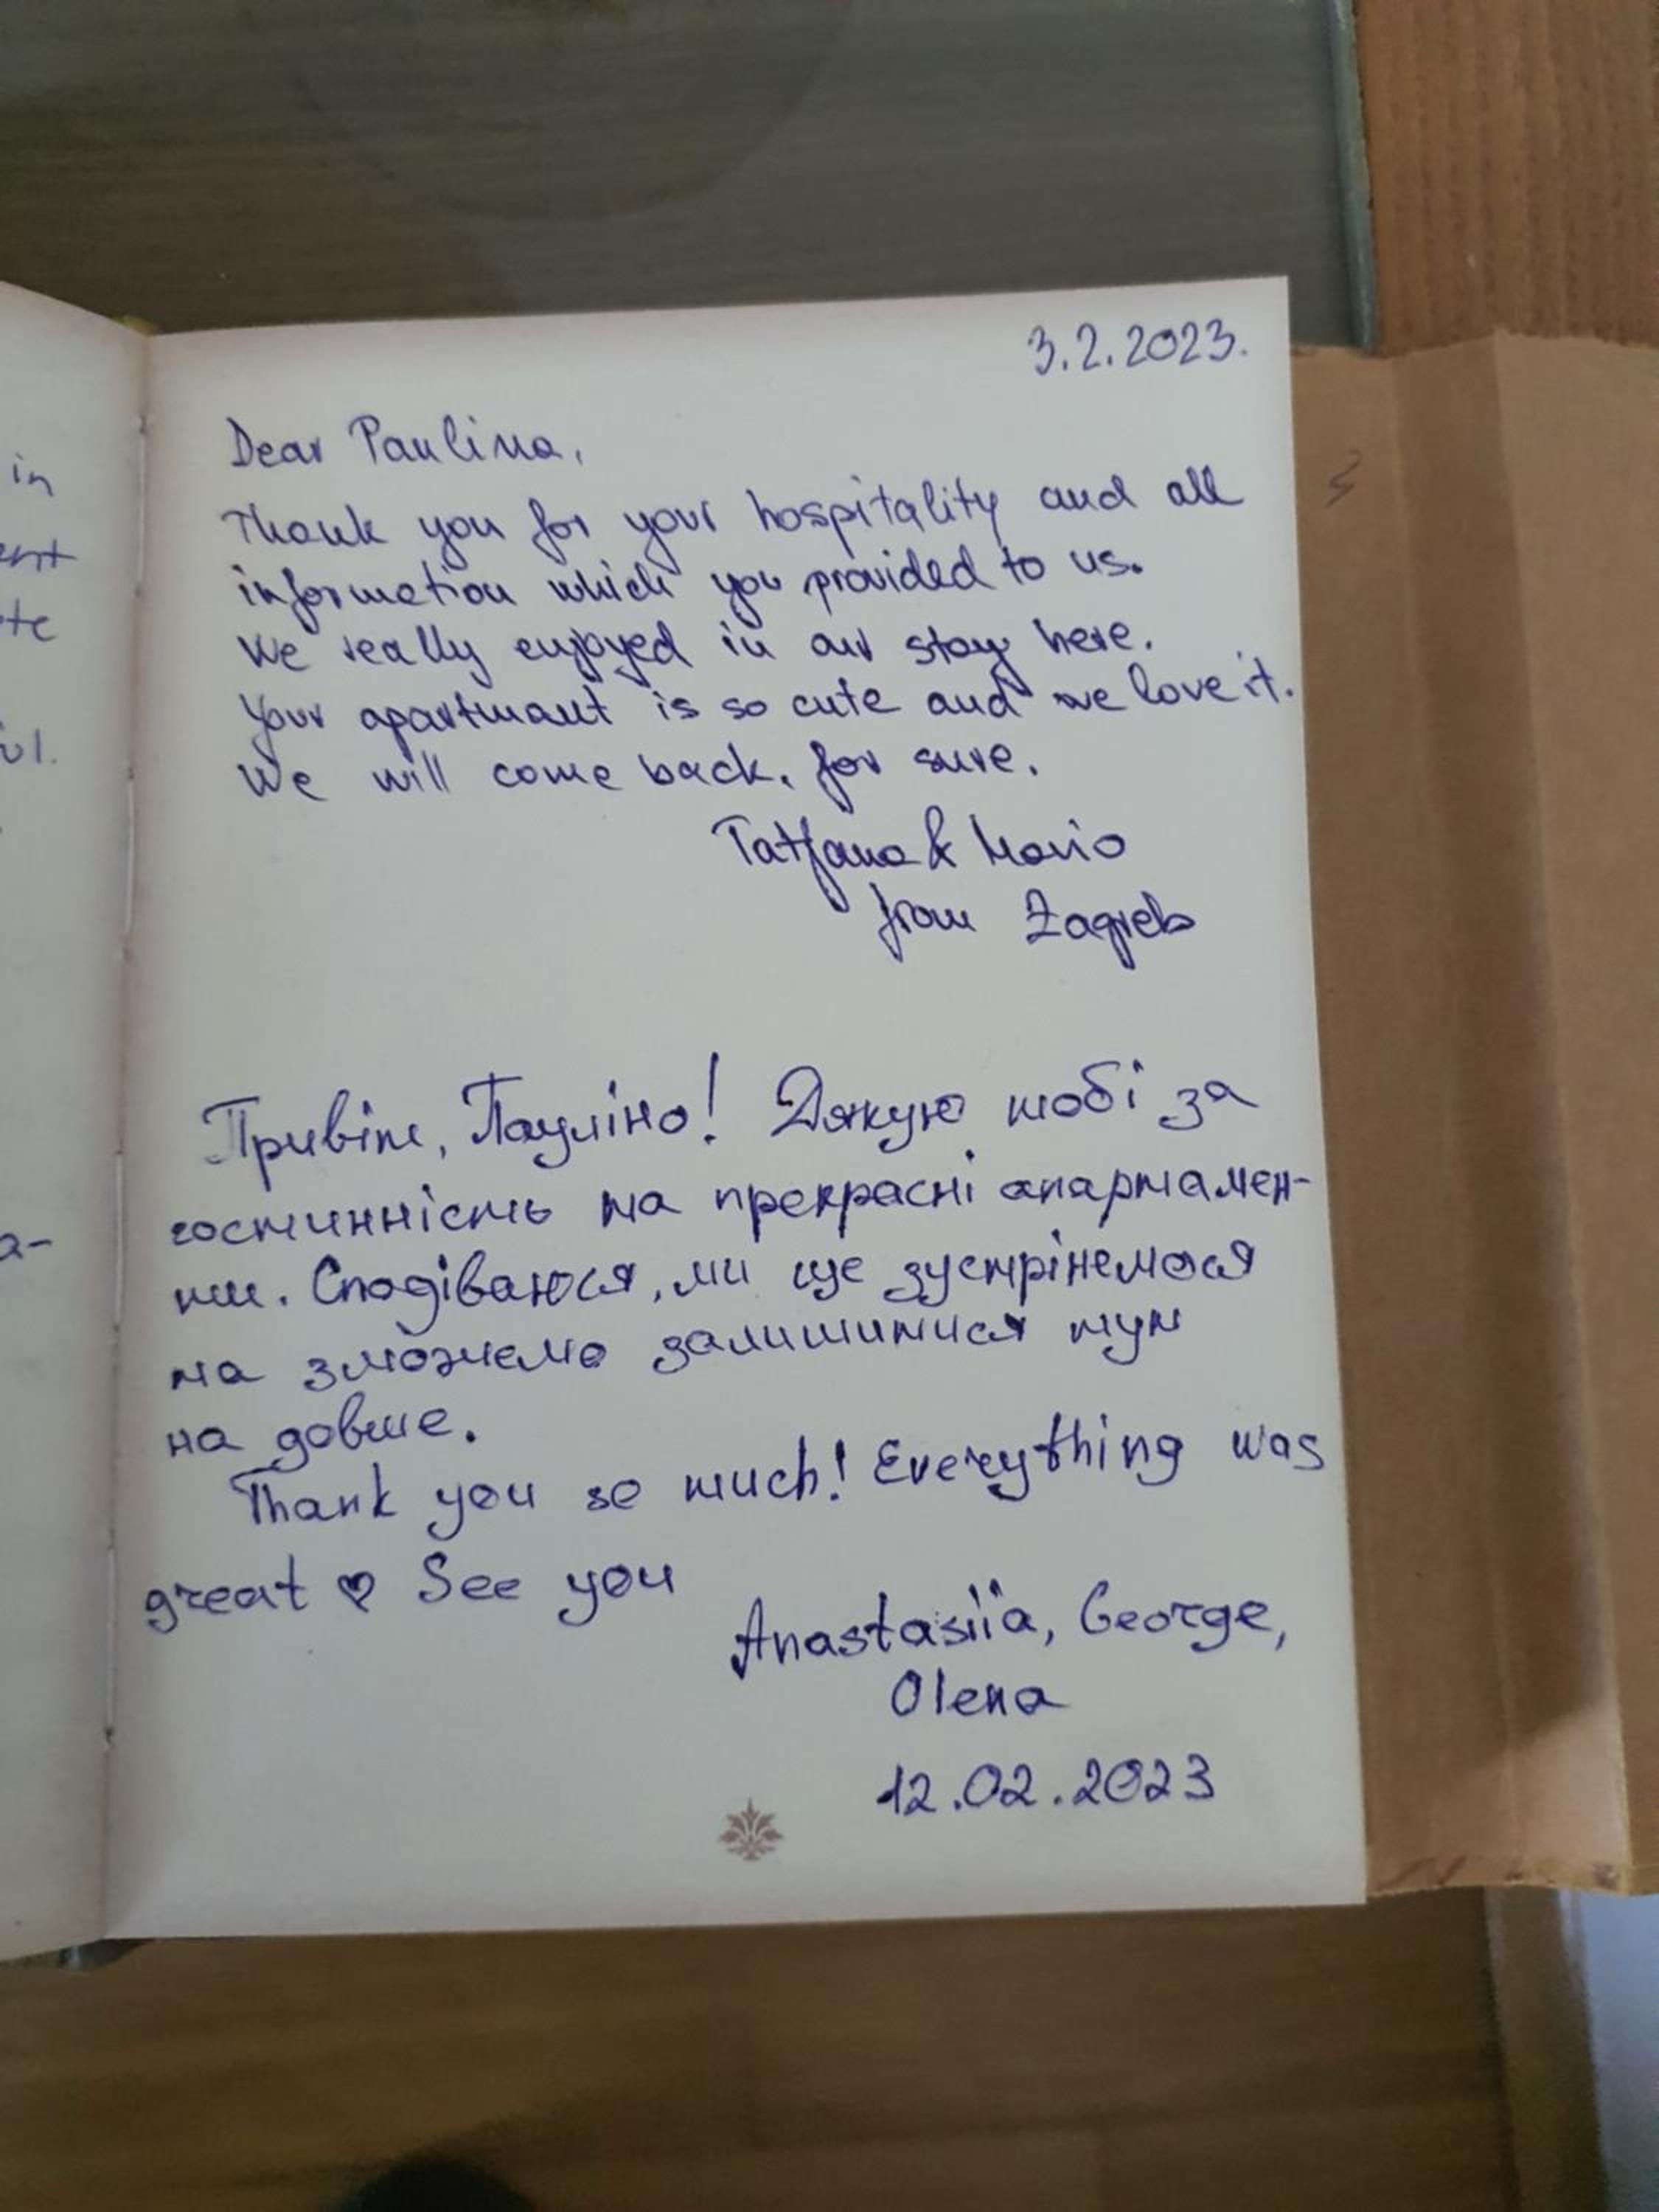 in
ent
te
ul.
a-
3.2.2023.
Dear Paulina,
Thank you for your hospitality and all
information which you provided to us.
We really enjoyed in our stay here.
Your apartmant is so cute and we love it.
We will come back. for sure.
Tatjana & Mario
from Zagreb
Привіт, Пауліно! Дякую тобі за
гостинність та прекрасні апартамен-
ти. Сподіваюся, ми ще зустрінемося
та зможемо залишитися тут
на довше.
Thank you so much! Everything was
great ♡ See you
Anastasiia, George,
Olena
12.02.2023